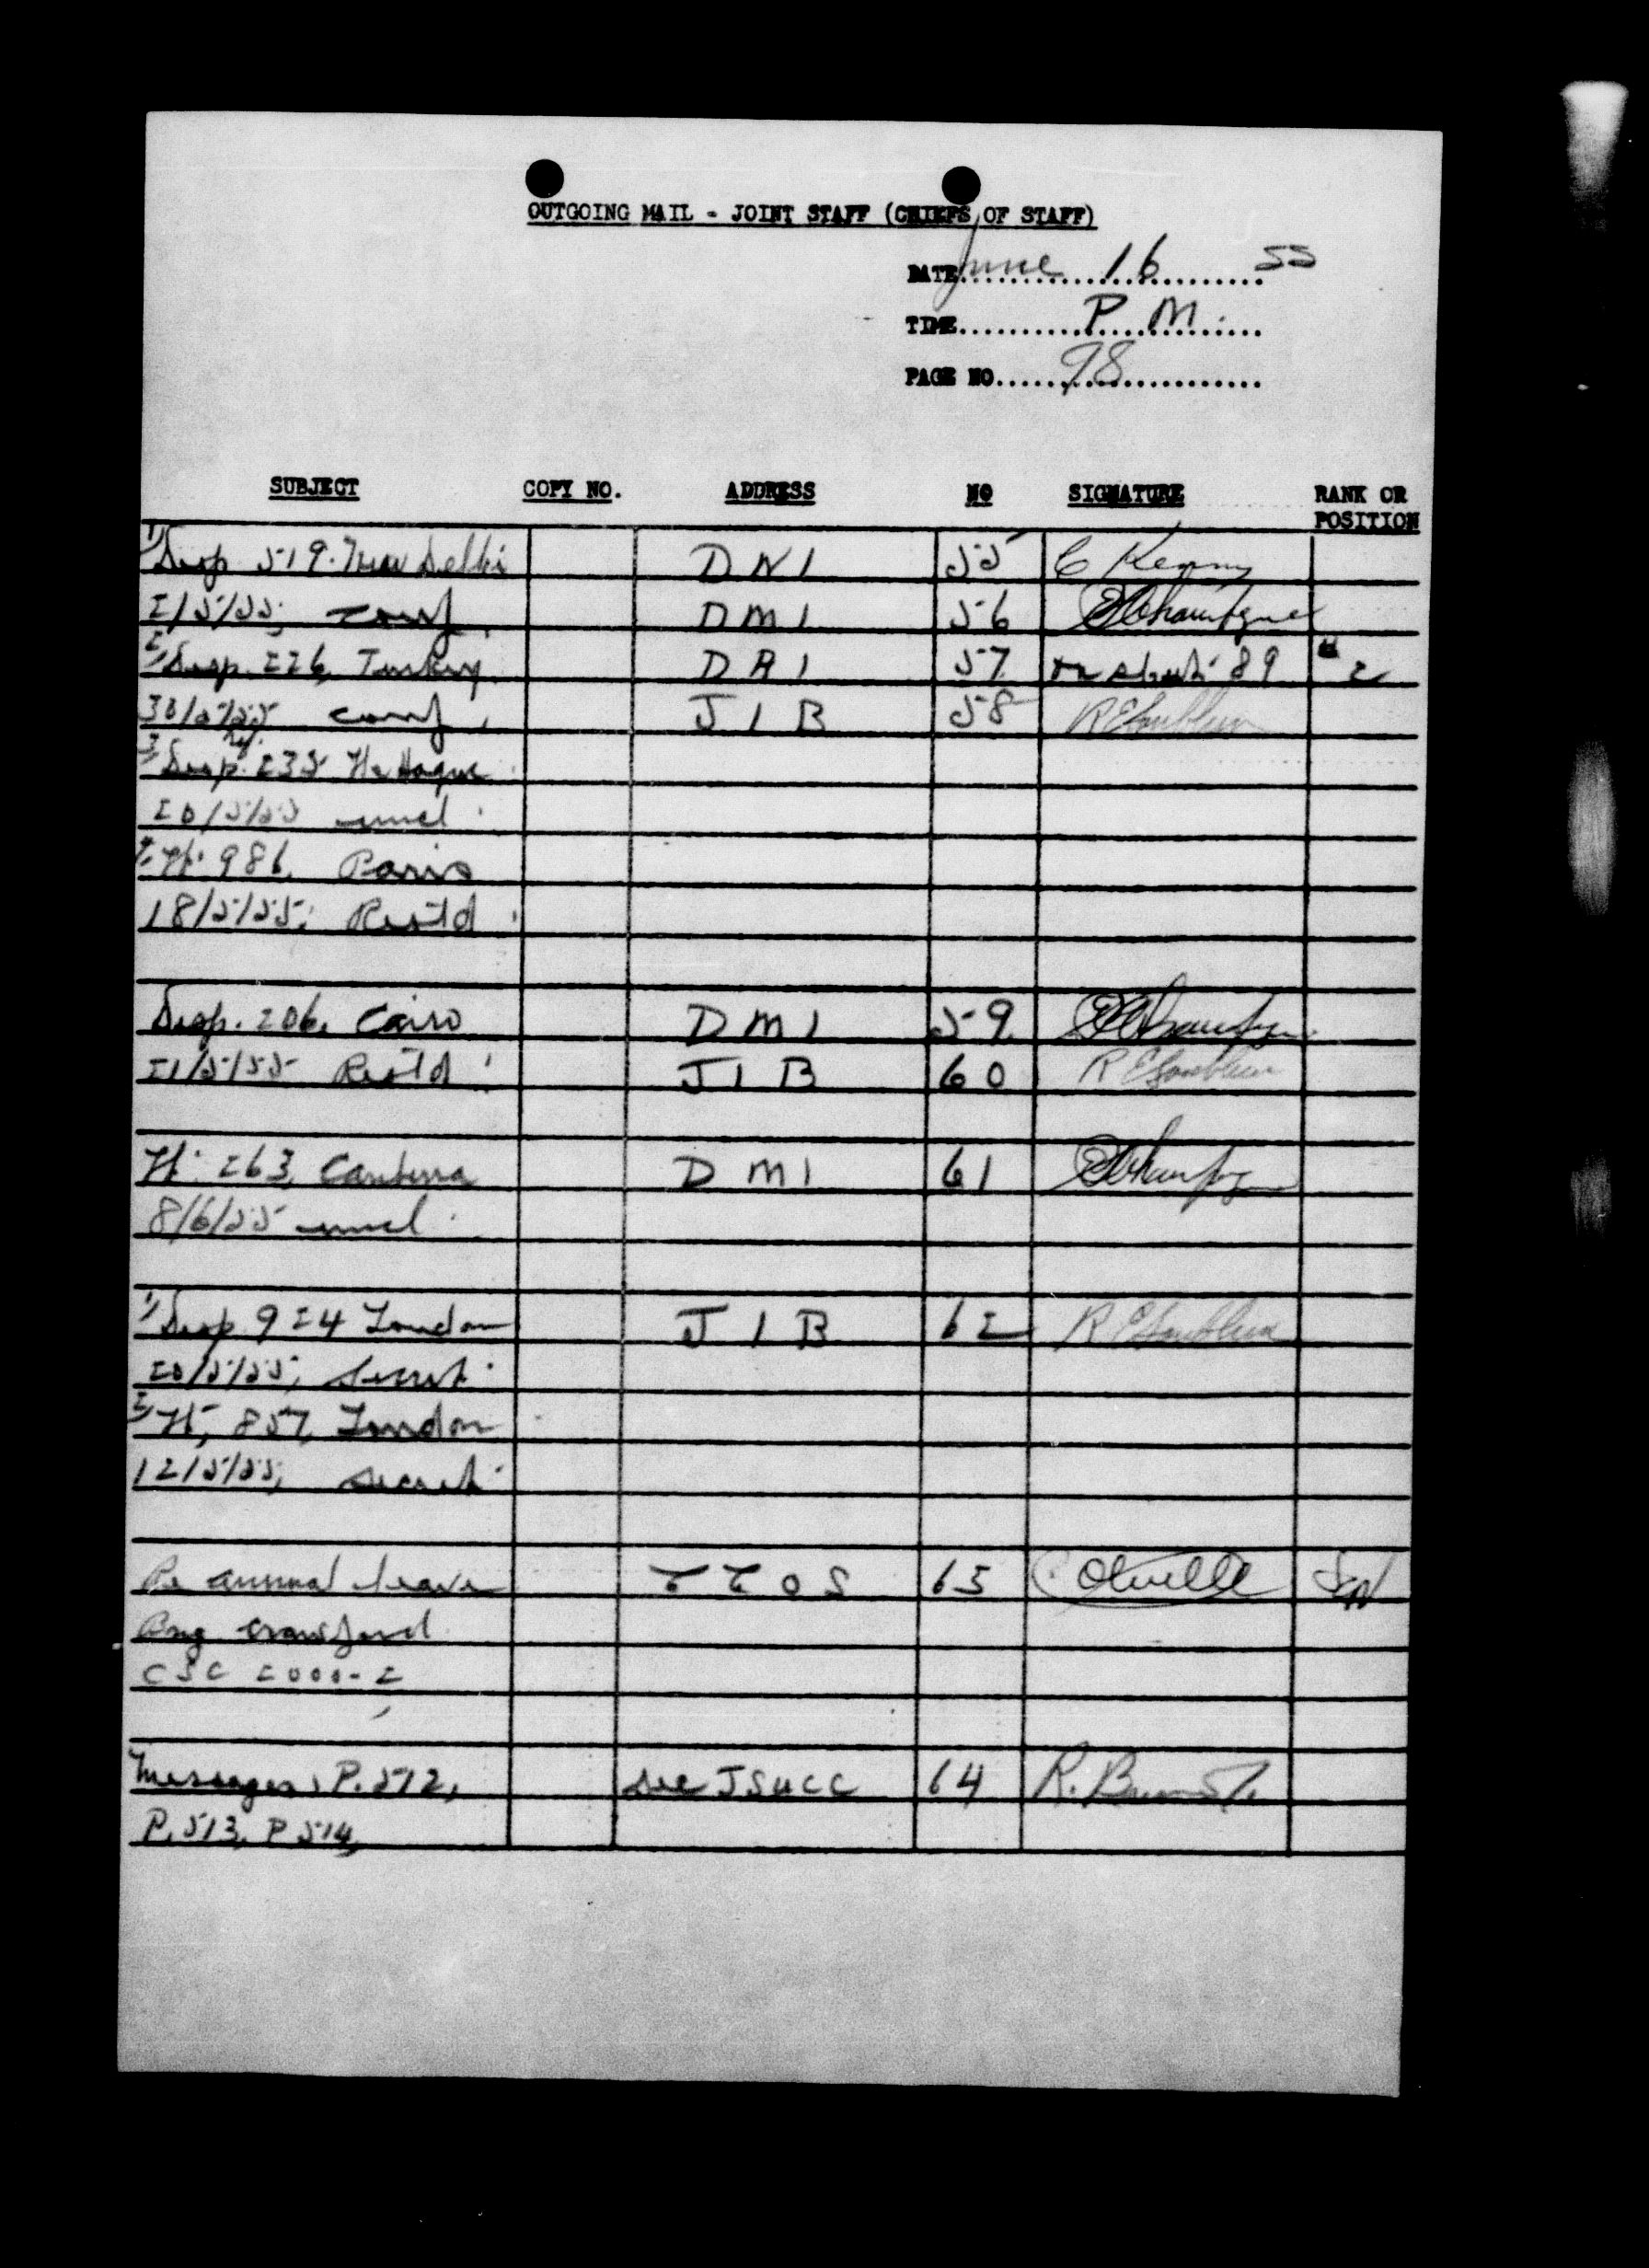 OUTGOING MAIL - JOINT STAFF (CHIEFS OF STAFF)
DATE June 16 55
TIME P.M.
PAGE NO. 98
SUBJECT COPY NO. ADDRESS NO SIGNATURE RANK OR POSITION
1) Desp 519. New Delhi DNI 55 C Kenny
21/5/55; conf. DMI 56
2) Desp. 226, Turkey DAI 57 on sheet 89 2
30/5/55 conf. JIB 58
3) Desp. 235 The Hague
20/5/55 uncl.
4. 986, Paris
18/5/55; Restd.
Desp. 206, Cairo DMI 59
21/5/55 Restd. JIB 60
263, Canberra DMI 61
8/6/55 uncl.
1) Desp 924 London JIB 62
20/5/55; secret.
2) 857, London
12/5/55; secret.
Re annual leave CCOS 63
Brig Crawford
CSC 2000-2
Messages, P.512, See JSUCC 64 R.
P.513, P 514,